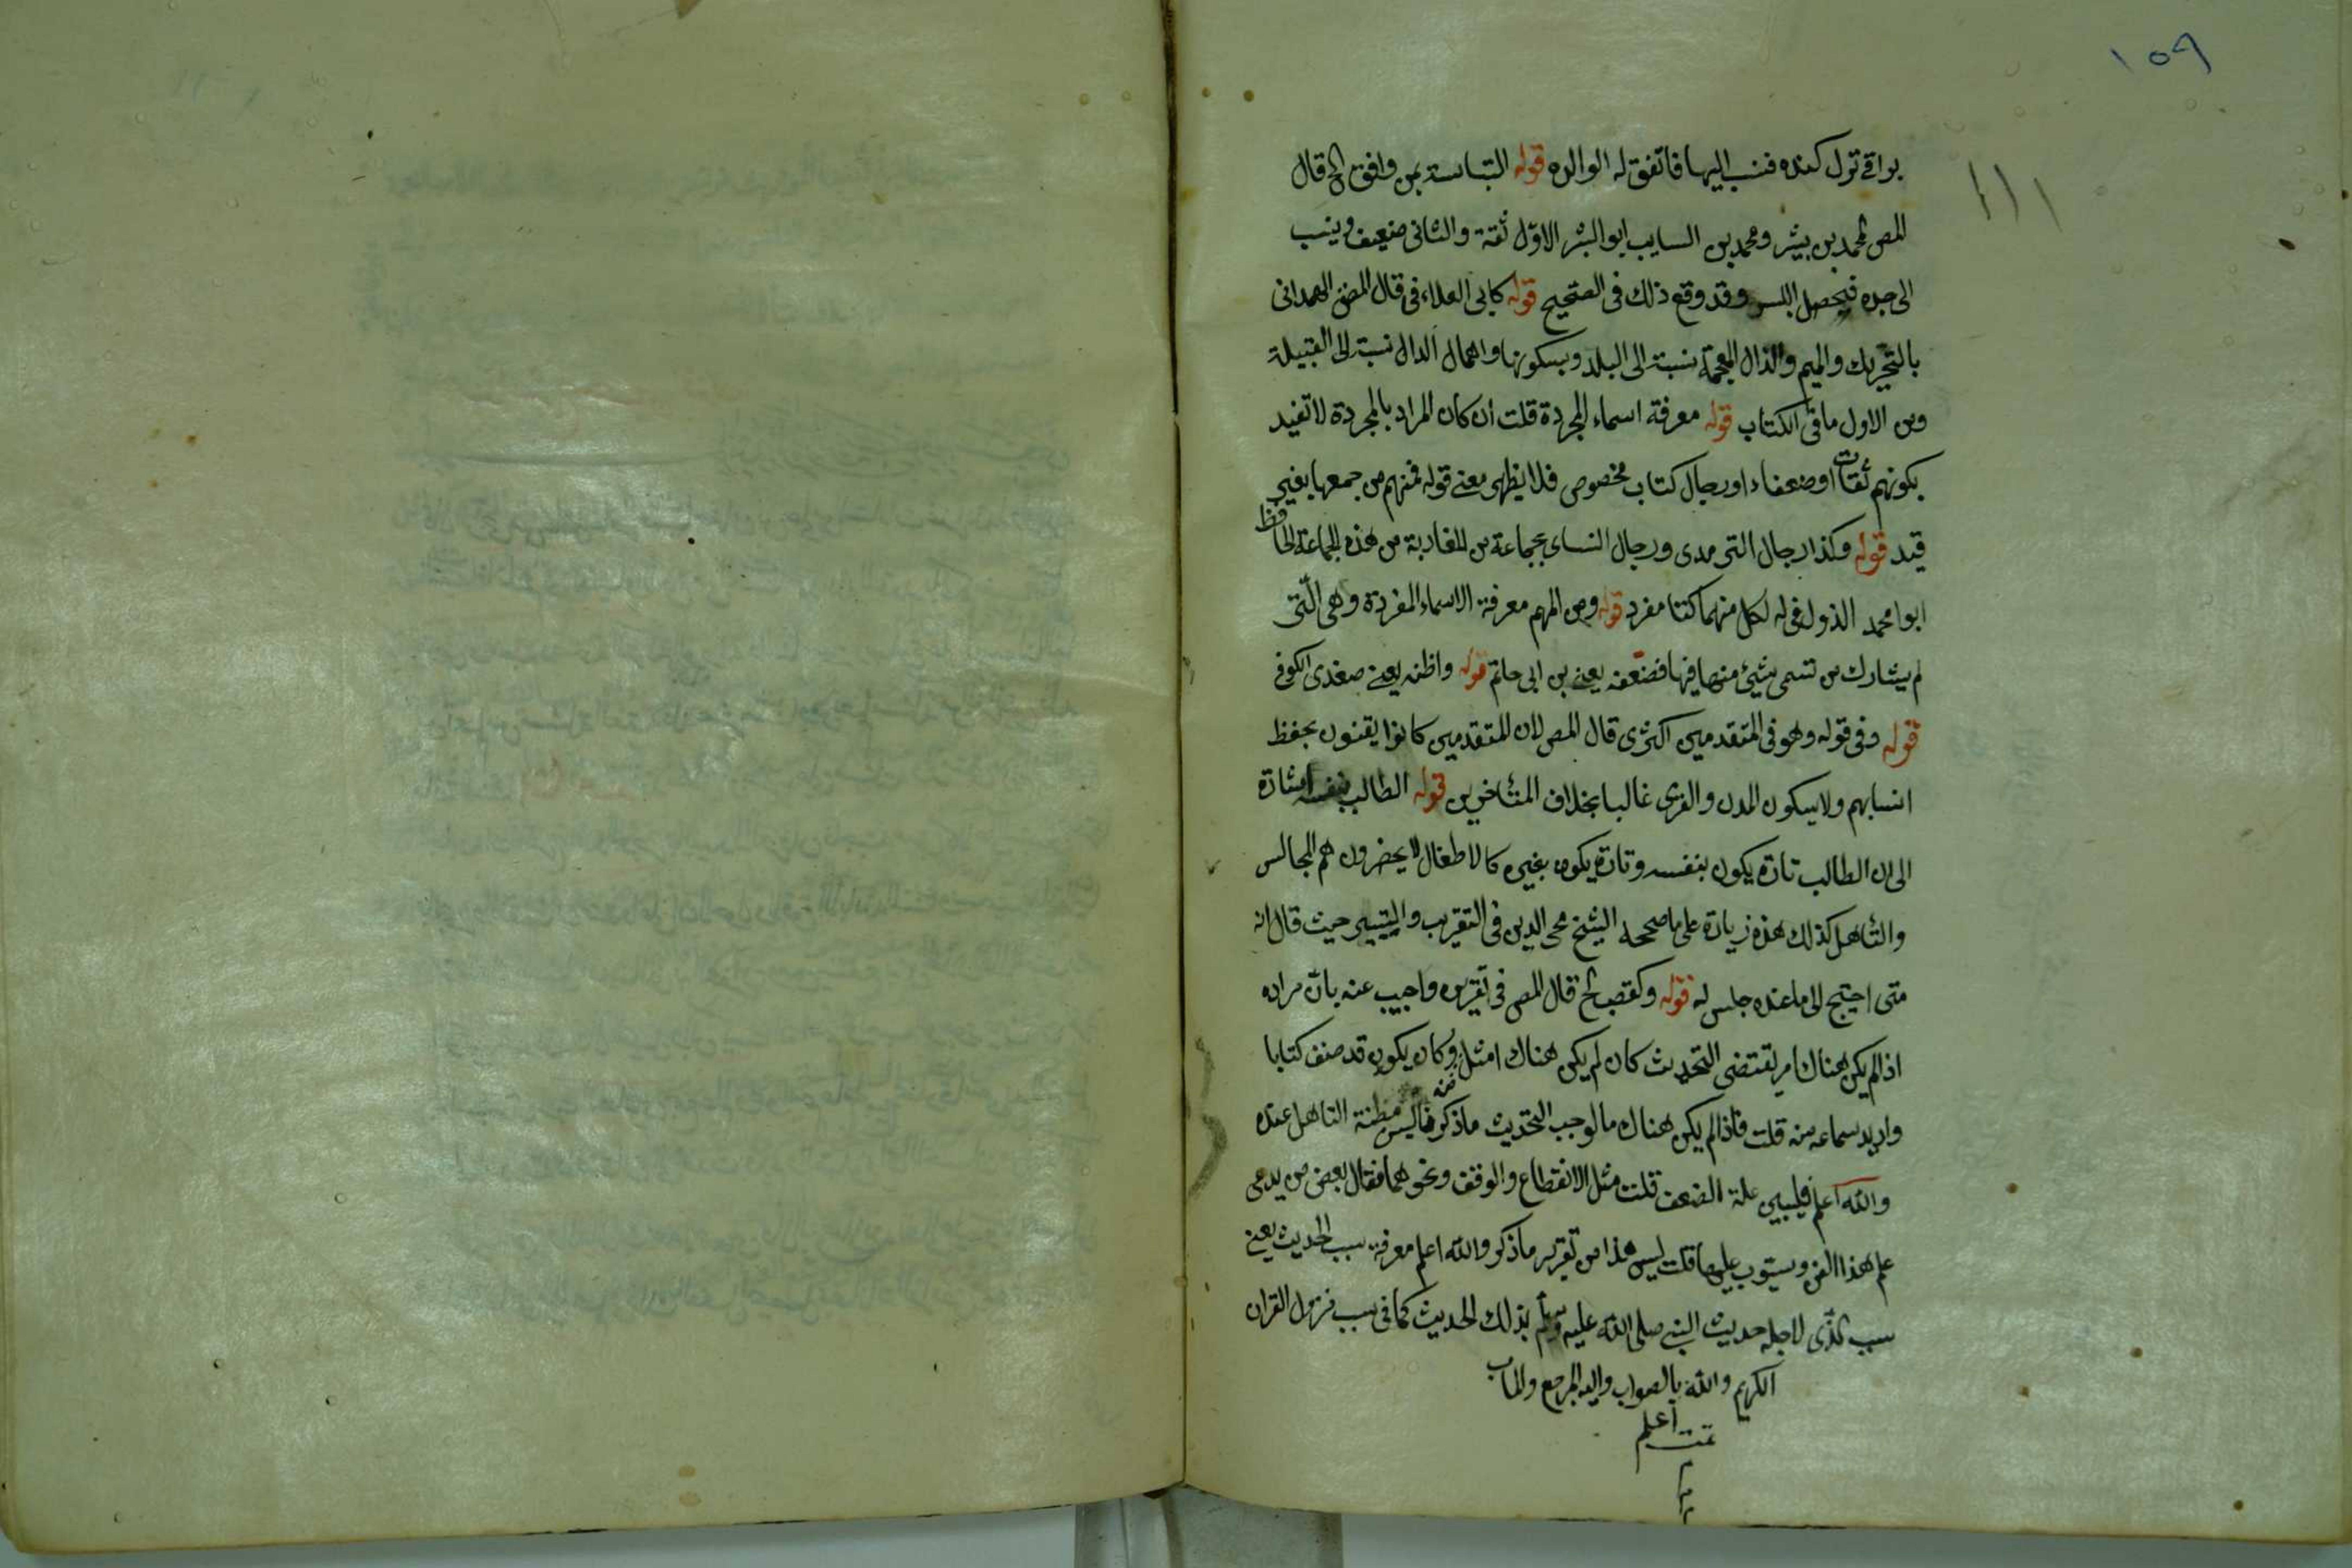 ١٥٩
١١١
براقي تزل كنده فنسب اليها فاتفق له الوالده قوله التباسته بمن وافق الخ قال
المص لمحمد بن بشر ومحمد بن السايب ابو البشر الاول ثقة والثانى ضعيف وينسب
الى جده فيحصل اللبس وقد وقع ذلك فى الصحيح قوله كابى العلاء فى قال المص الهمدانى
بالتحريك والميم والذال المعجمة نسبة الى البلد وبسكونها واهمال الدال نسبة الى القبيلة
ومن الاول ما فى الكتاب قوله معرفة اسماء المجردة قلت ان كان المراد بالمجردة لا تفيد
بكونهم ثقات او ضعفاء او رجال كتاب مخصوص فلا يظهر معنى قوله فمنهم من جمعها بغير
قيد قوله وكذا رجال الترمدى ورجال النساى بجماعة من المغاربة من هذه الجماعة الحافظ
ابوا محمد الذولغى له لكل منهما كتا مفرد قوله ومن المهم معرفة الاسماء المفردة وهى التى
لم يشارك من تسمى بشيئ منها فيها فضعفه يعنى بن ابى حاتم قوله واظنه يعنى صغدى الكوفى
قوله وفى قوله وهو فى المتقدمين اكثرى قال المص لان المتقدمين كانوا يقنون بحفظ
انسابهم ولا يسكون المدن والقرى غالبا بخلاف المتأخرين قوله الطالب بنفسه اشارة
الى ان الطالب تارة يكون بنفسه وتارة يكون بغيره كالاطفال لا يحضرون هم المجالس
والتأهل كذلك هذه زيادة على ما صححه الشيخ محى الدين فى التقريب والتيسير حيث قال انه
متى احتيج الى ما عنده جلس له قوله وكقصب الخ قال المص فى تقريره واجيب عنه بان مراده
اذا لم يكن هناك امر يقتضى التحديث كان لم يكن هناك امثل منه وكان يكون قد صنف كتابا
واريد سماعه منه قلت فاذا لم يكن هناك ما لوجب التحديث ما ذكر فاليس مظنة التاهل عنده
والله اعلم فليبين علة الضعف قلت مثل الانقطاع والوقف ونحوهما فقال بعض من يدعى
علم هذا الفن ويستوب عليها قلت ليس هذا من تقرير ما ذكر والله اعلم معرفة سبب الحديث يعنى
سبب الذى لاجله حديث النبى صلى الله عليه وسلم بذلك الحديث كما فى سبب نزول القران
الكريم والله بالصواب واليه المرجع والماب
اعلم
تمت